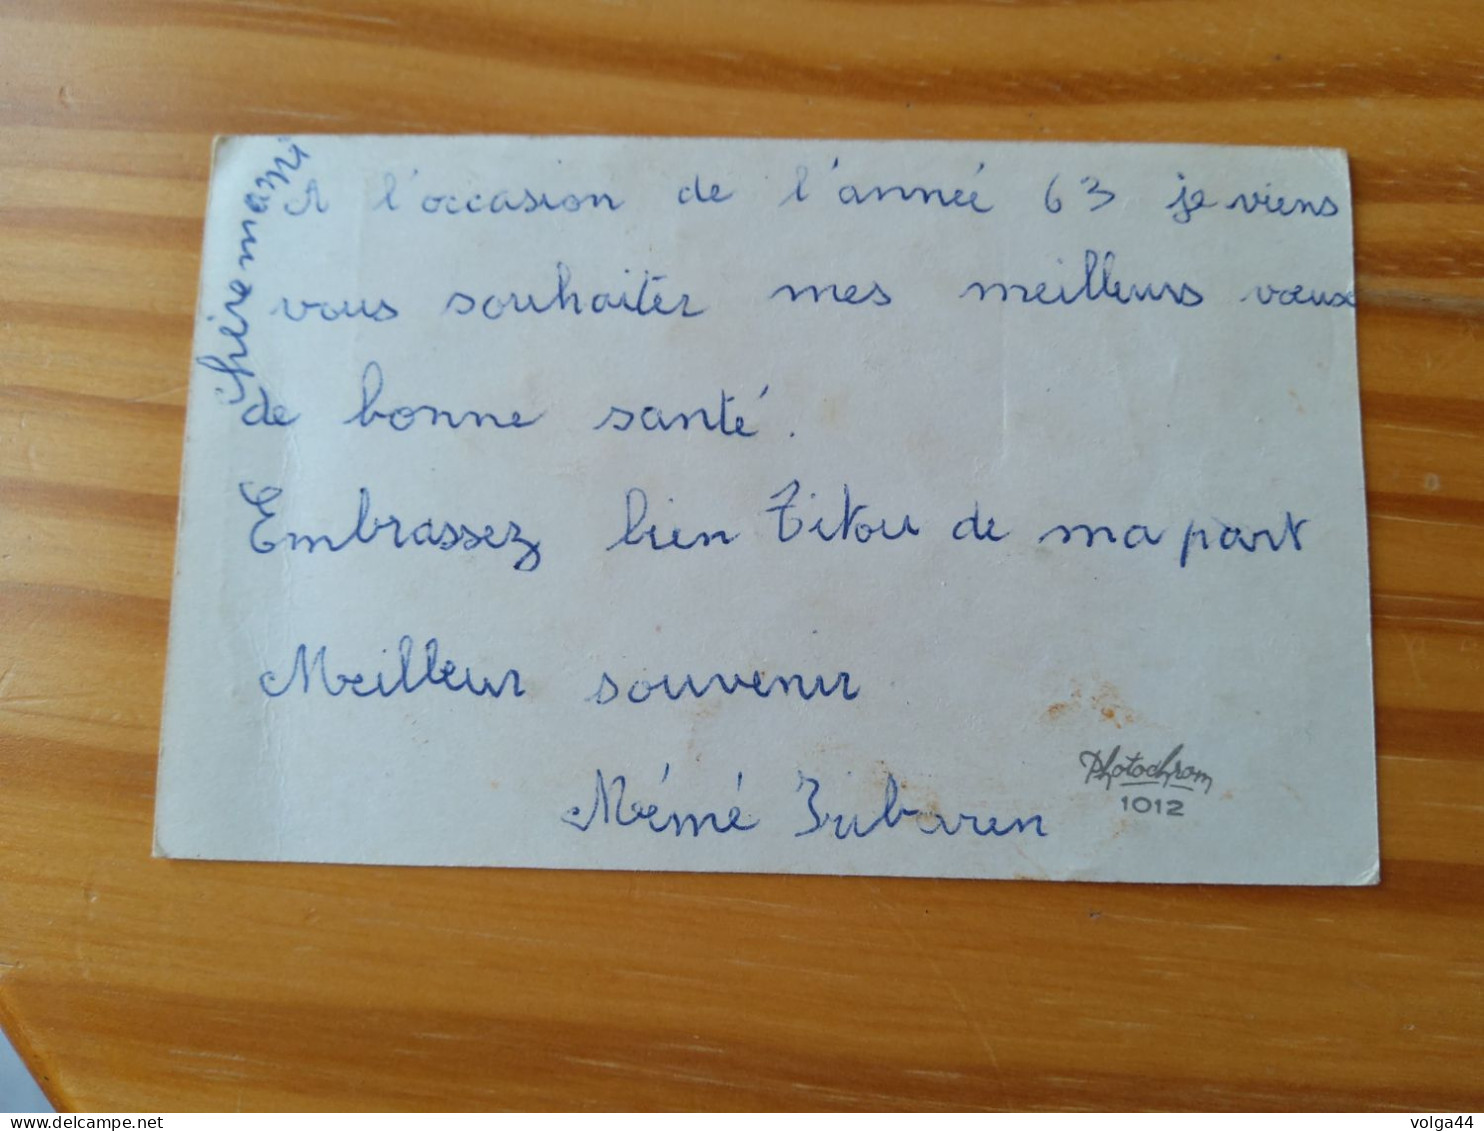 Chère mami
A l'occasion de l'anneé 63 je viens
vous souhaiter mes meilleurs vœux
de bonne santé.
Embrassez bien Titou de ma part
Meilleur souvenir
Mémé Iribaren
Photochrom
1012
volga44